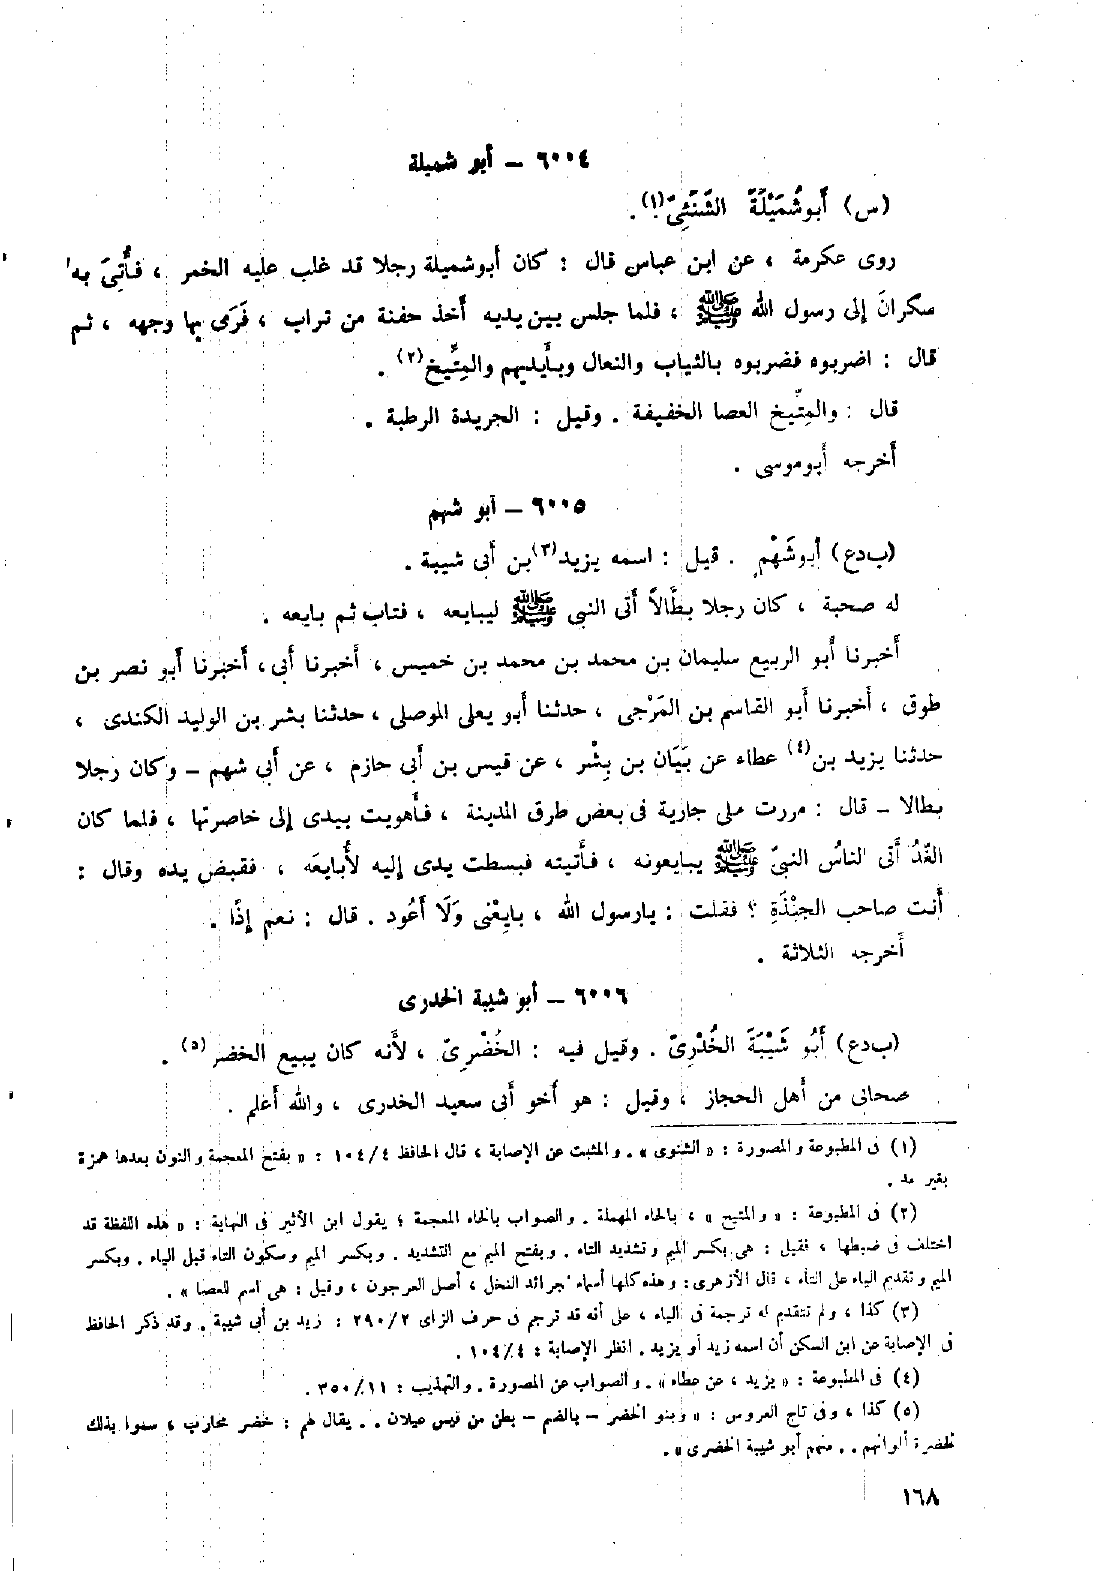 ٦٠٠٤ – أبو شميلة
(س) أَبو شُمَيْلَةَ الشَّنَئِىّ(١).
روى عكرمة ، عن ابن عباس قال : كان أبو شميلة رجلا قد غلب عليه الخمر ، فأُتِىَ به
سكرانَ إلى رسول الله ﷺ ، فلما جلس بين يديه أخذ حفنة من تراب ، فَرَمى بها وجهه ، ثم
قال : اضربوه فضربوه بالثياب والنعال وبأيديهم والمِتِّيخ(٢) .
قال : والمِتِّيخ العصا الخفيفة . وقيل : الجريدة الرطبة .
أخرجه أبو موسى .
٦٠٠٥ – أبو شهم
(ب دع) أبو شَهْمٍ . قيل : اسمه يزيد(٣) بن أبى شيبة .
له صحبة ، كان رجلا بطَّالاً أتى النبى ﷺ ليبايعه ، فتاب ثم بايعه .
أخبرنا أبو الربيع سليمان بن محمد بن محمد بن خميس ، أخبرنا أبى ، أخبرنا أبو نصر بن
طوق ، أخبرنا أبو القاسم بن المَرْجى ، حدثنا أبو يعلى الموصلى ، حدثنا بشر بن الوليد الكندى ،
حدثنا يزيد بن(٤) عطاء عن بَيَان بن بِشْر ، عن قيس بن أبى حازم ، عن أبى شهم – وكان رجلا
بطالا – قال : مررت على جارية فى بعض طرق المدينة ، فأهويت بيدى إلى خاصرتها ، فلما كان
الغَدُ أتى الناسُ النبىّ ﷺ يبايعونه ، فأتيته فبسطت يدى إليه لأُبايعَه ، فقبض يده وقال :
أنت صاحب الجبْذَةِ ؟ فقلت : يارسول الله ، بايِعْنى وَلَا أَعُود . قال : نعم إذًا .
أخرجه الثلاثة .
٦٠٠٦ – أبو شيبة الخدرى
(ب دع) أَبُو شَيْبَةَ الخُدْرِىّ . وقيل فيه : الخُضْرِىّ ، لأَنه كان يبيع الخضر(٥) .
صحابى من أهل الحجاز ، وقيل : هو أخو أبى سعيد الخدرى ، والله أعلم .
(١) فى المطبوعة والمصورة : « الشنوى » . والمثبت عن الإصابة ، قال الحافظ ١٠٤/٤ : « بفتح المعجمة والنون بعدها همزة
بغير مد .
(٢) فى المطبوعة : « والمتيح » ، بالحاء المهملة . والصواب بالخاء المعجمة ؛ يقول ابن الأثير فى النهاية : « هذه اللفظة قد
اختلف فى ضبطها ، فقيل : هى بكسر الميم وتشديد التاء . وبفتح الميم مع التشديد . وبكسر الميم وسكون التاء قبل الياء . وبكسر
الميم وتقديم الياء على التاء ، قال الأزهرى : وهذه كلها أسماء لجرائد النخل ، أصل العرجون ، وقيل : هى اسم للعصا » .
(٣) كذا ، ولم تتقدم له ترجمة فى الياء ، على أنه قد ترجم فى حرف الزاى ٢٩٠/٢ : زيد بن أبى شيبة . وقد ذكر الحافظ
فى الإصابة عن ابن السكن أن اسمه زيد أو يزيد . انظر الإصابة : ١٠٤/٤ .
(٤) فى المطبوعة : « يزيد ، عن عطاء » . والصواب عن المصورة . والتهذيب : ٣٥٠/١١ .
(٥) كذا ، وفى تاج العروس : « وبنو الخضر – بالضم – بطن من قيس عيلان . . يقال لهم : خضر محارب ، سموا بذلك
لخضرة ألوانهم . . منهم أبو شيبة الخضرى » .
١٦٨